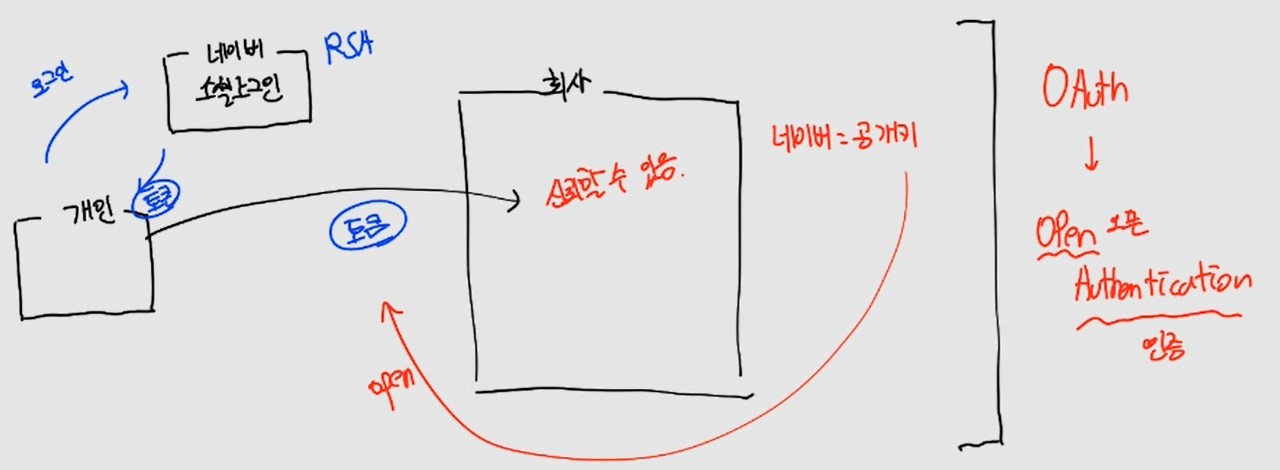 로그인
네이버
소셜로그인
RSA
개인
토큰
토큰
회사
신뢰할 수 있음.
네이버 = 공개키
open
OAuth
↓
OPen 오픈
Authentication
인증